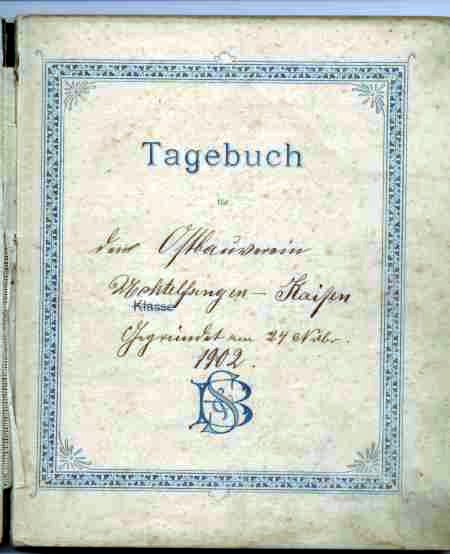 Tagebuch
für
den Ostbauverein
Uchtelfangen - Kaisen
Klasse
Gegründet am
1902.